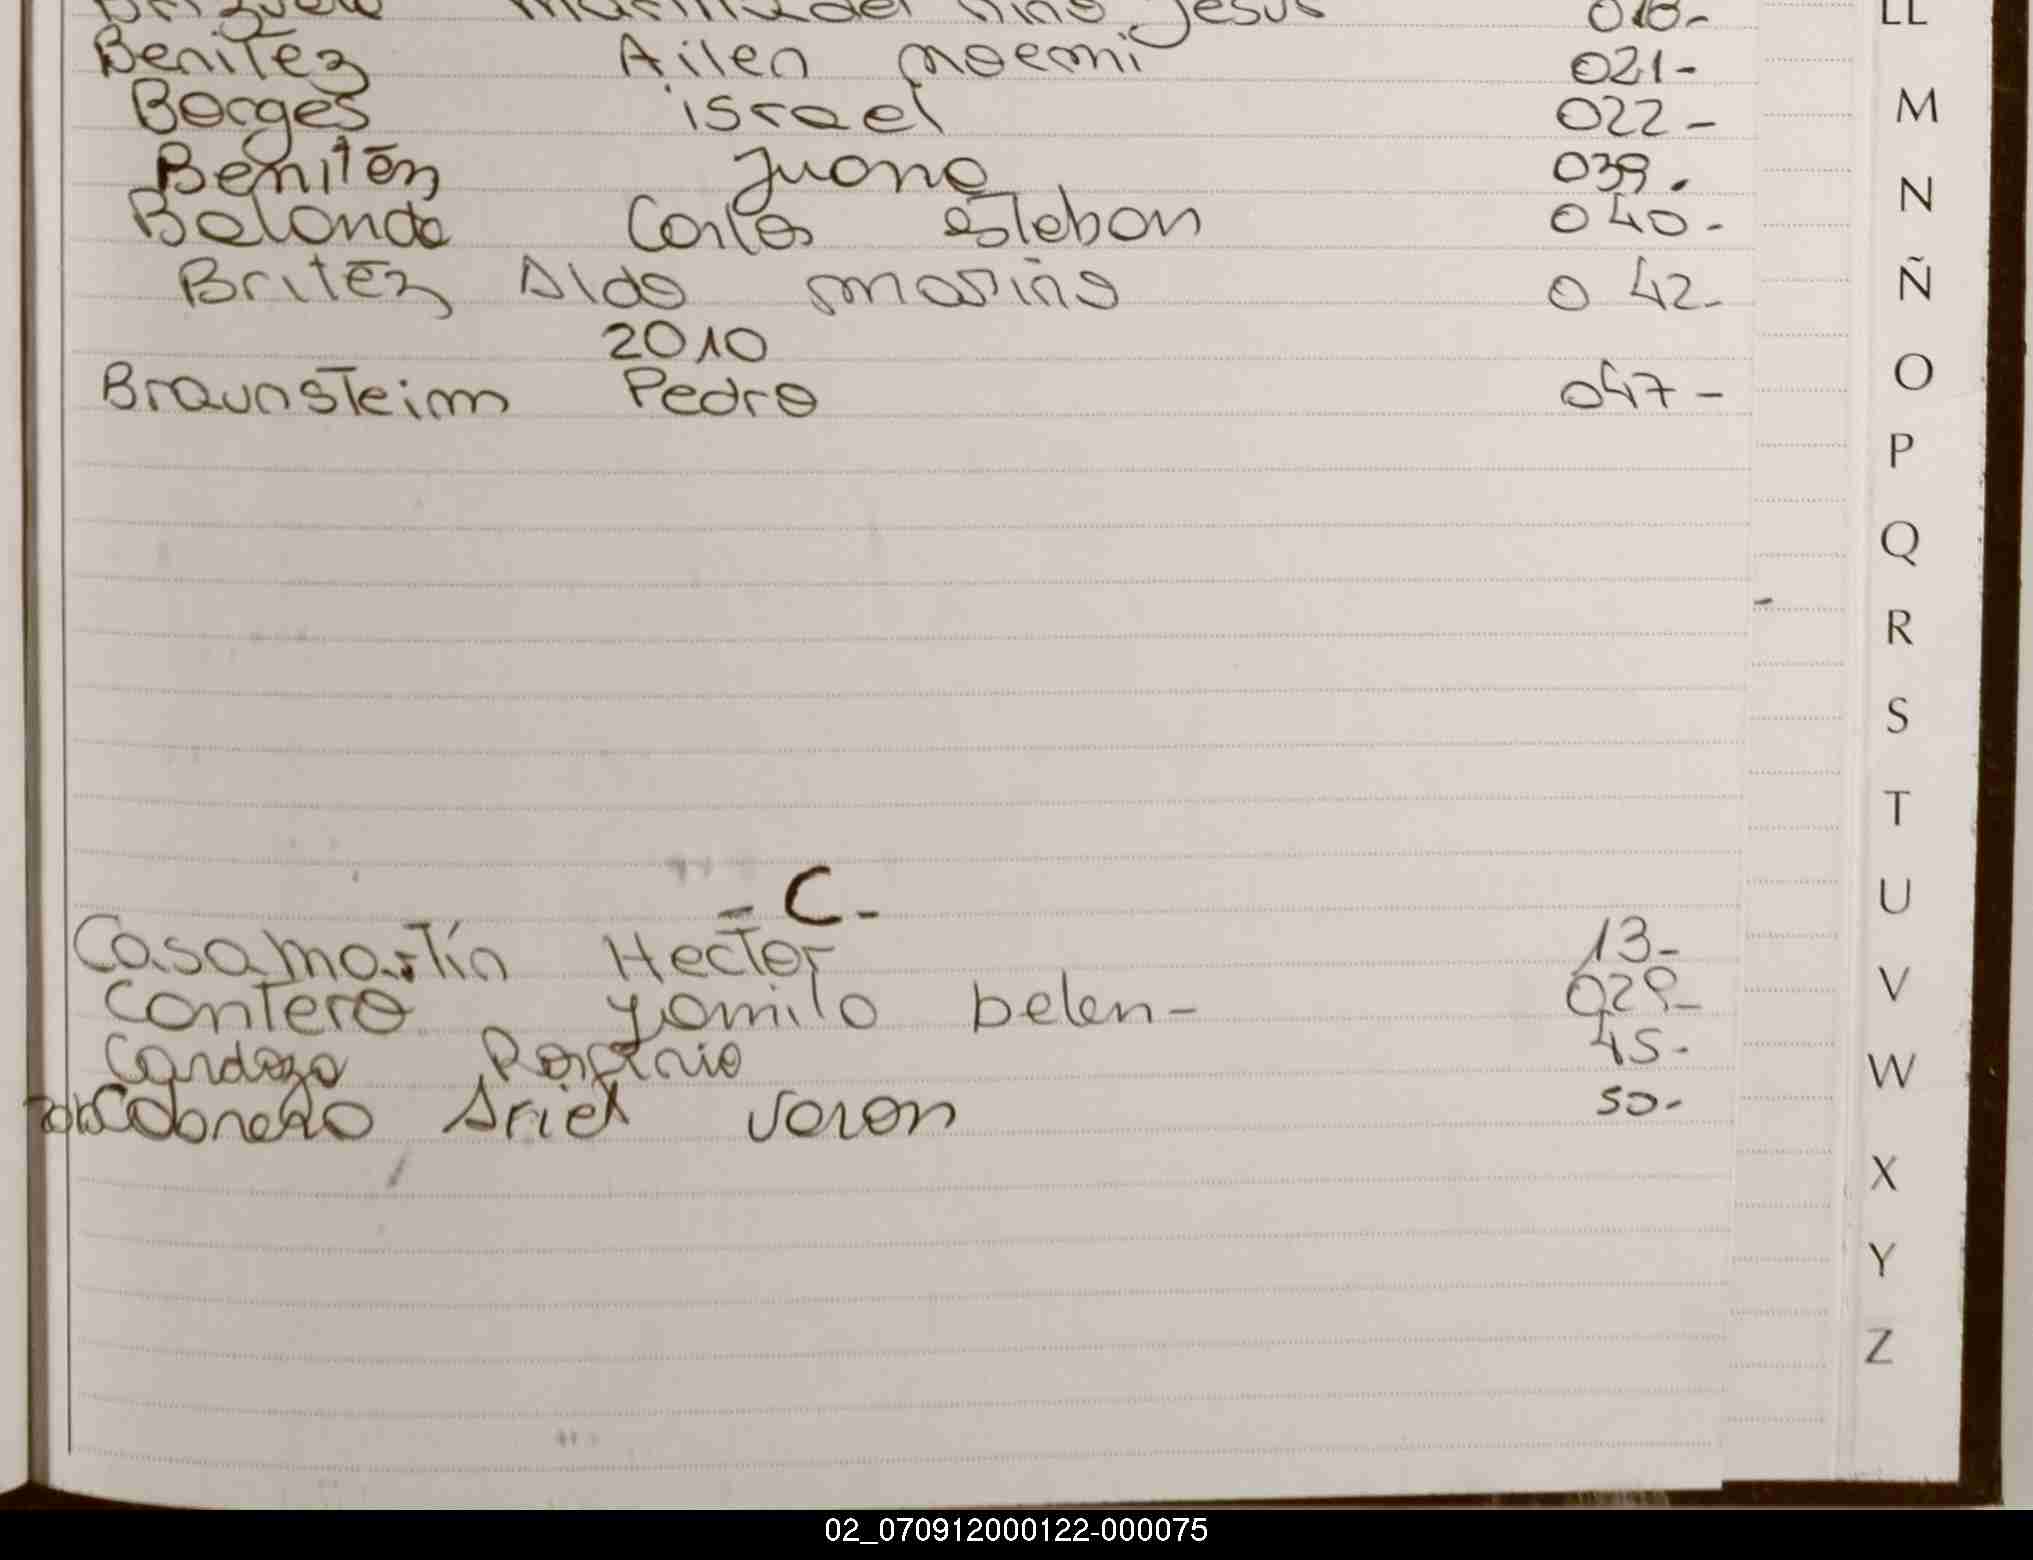 Jesus 018-
Benitez Ailen noemi 021-
Borges israel 022-
Benitez Juana 039.
Balanda Carlos esteban 040-
Britez Aldo mariño 042-
2010
Braunsteim Pedro 047-
- C -
Casamartín Hector 13-
Contero yamila belen-
Cardozo 45-
Ariel 50-
LL
M
N
Ñ
O
P
Q
R
S
T
U
V
W
X
Y
Z
02_070912000122-000075